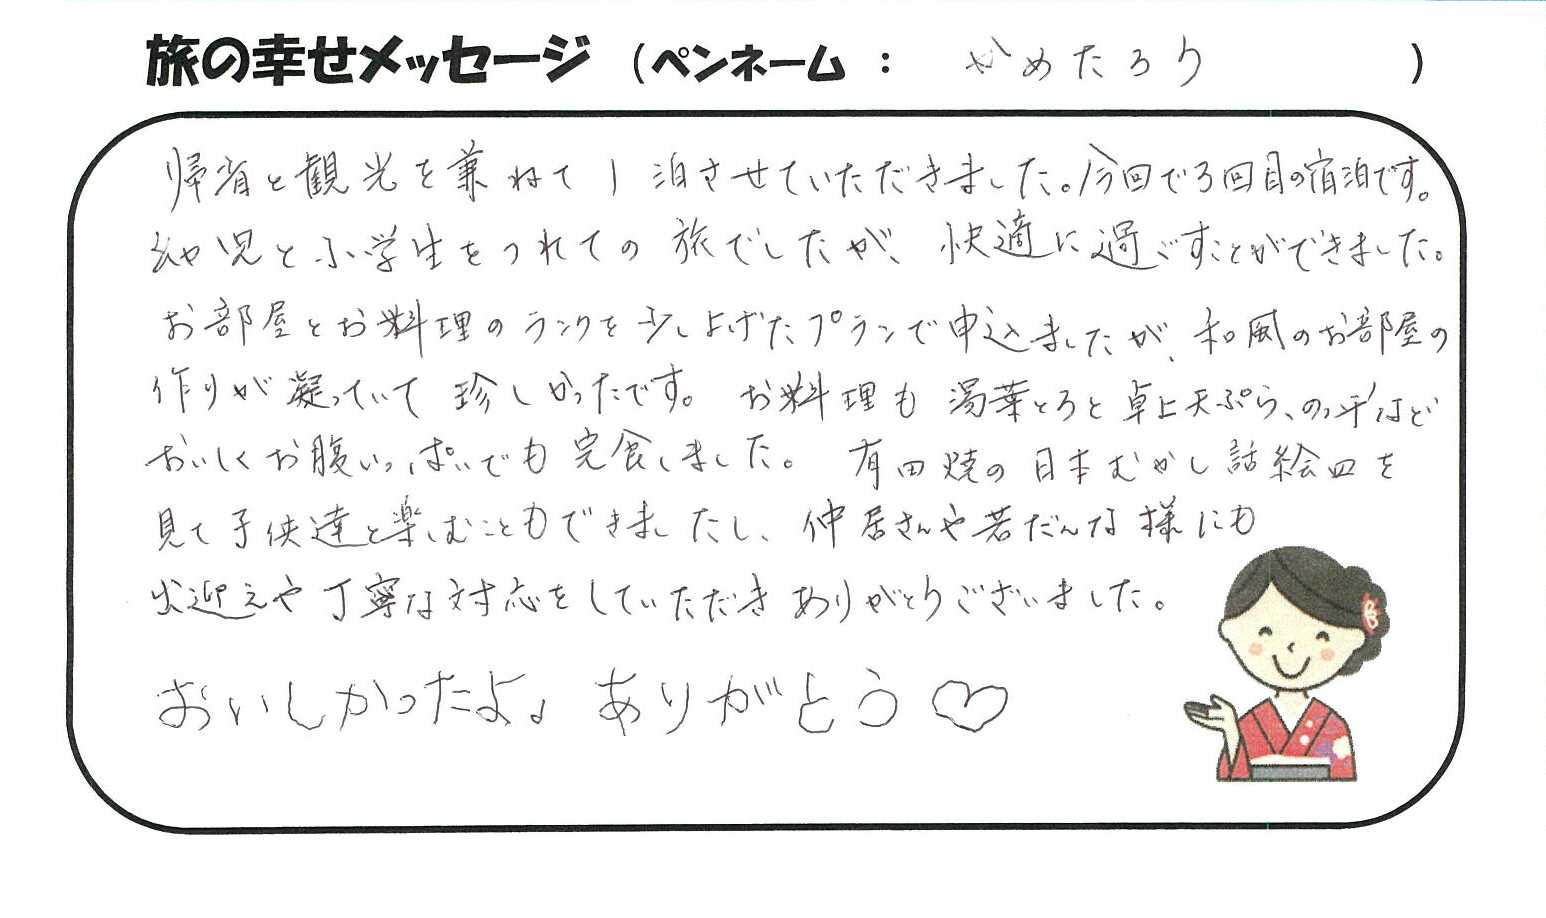 旅の幸せメッセージ （ペンネーム ： かめたろう ）
帰省と観光を兼ねて1泊させていただきました。今回で3回目の宿泊です。
幼児と小学生をつれての旅でしたが、快適に過ごすことができました。
お部屋とお料理のランクを少し上げたプランで申込ましたが、和風のお部屋の
作りが凝っていて珍しかったです。お料理も湯葉とろと卓上天ぷら、のっぺなど
おいしくお腹いっぱいでも完食しました。有田焼の日本むかし話絵皿を
見て子供達と楽しむこともできましたし、仲居さんや若だんな様にも
出迎えや丁寧な対応をしていただきありがとうございました。
おいしかったよ。ありがとう♡